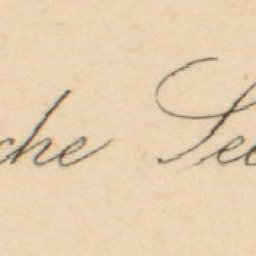 che See